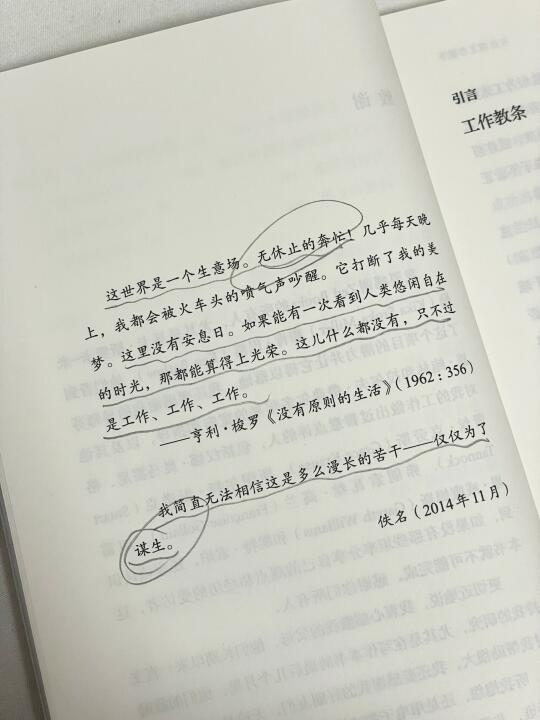 这世界是一个生意场。无休止的奔忙！几乎每天晚
上，我都会被火车头的喷气声吵醒。它打断了我的美
梦。这里没有安息日。如果能有一次看到人类悠闲自在
的时光，那都能算得上光荣。这儿什么都没有，只不过
是工作、工作、工作。
——亨利·梭罗《没有原则的生活》（1962：356）
我简直无法相信这是多么漫长的苦干——仅仅为了
谋生。
佚名（2014年11月）
引言
工作教条